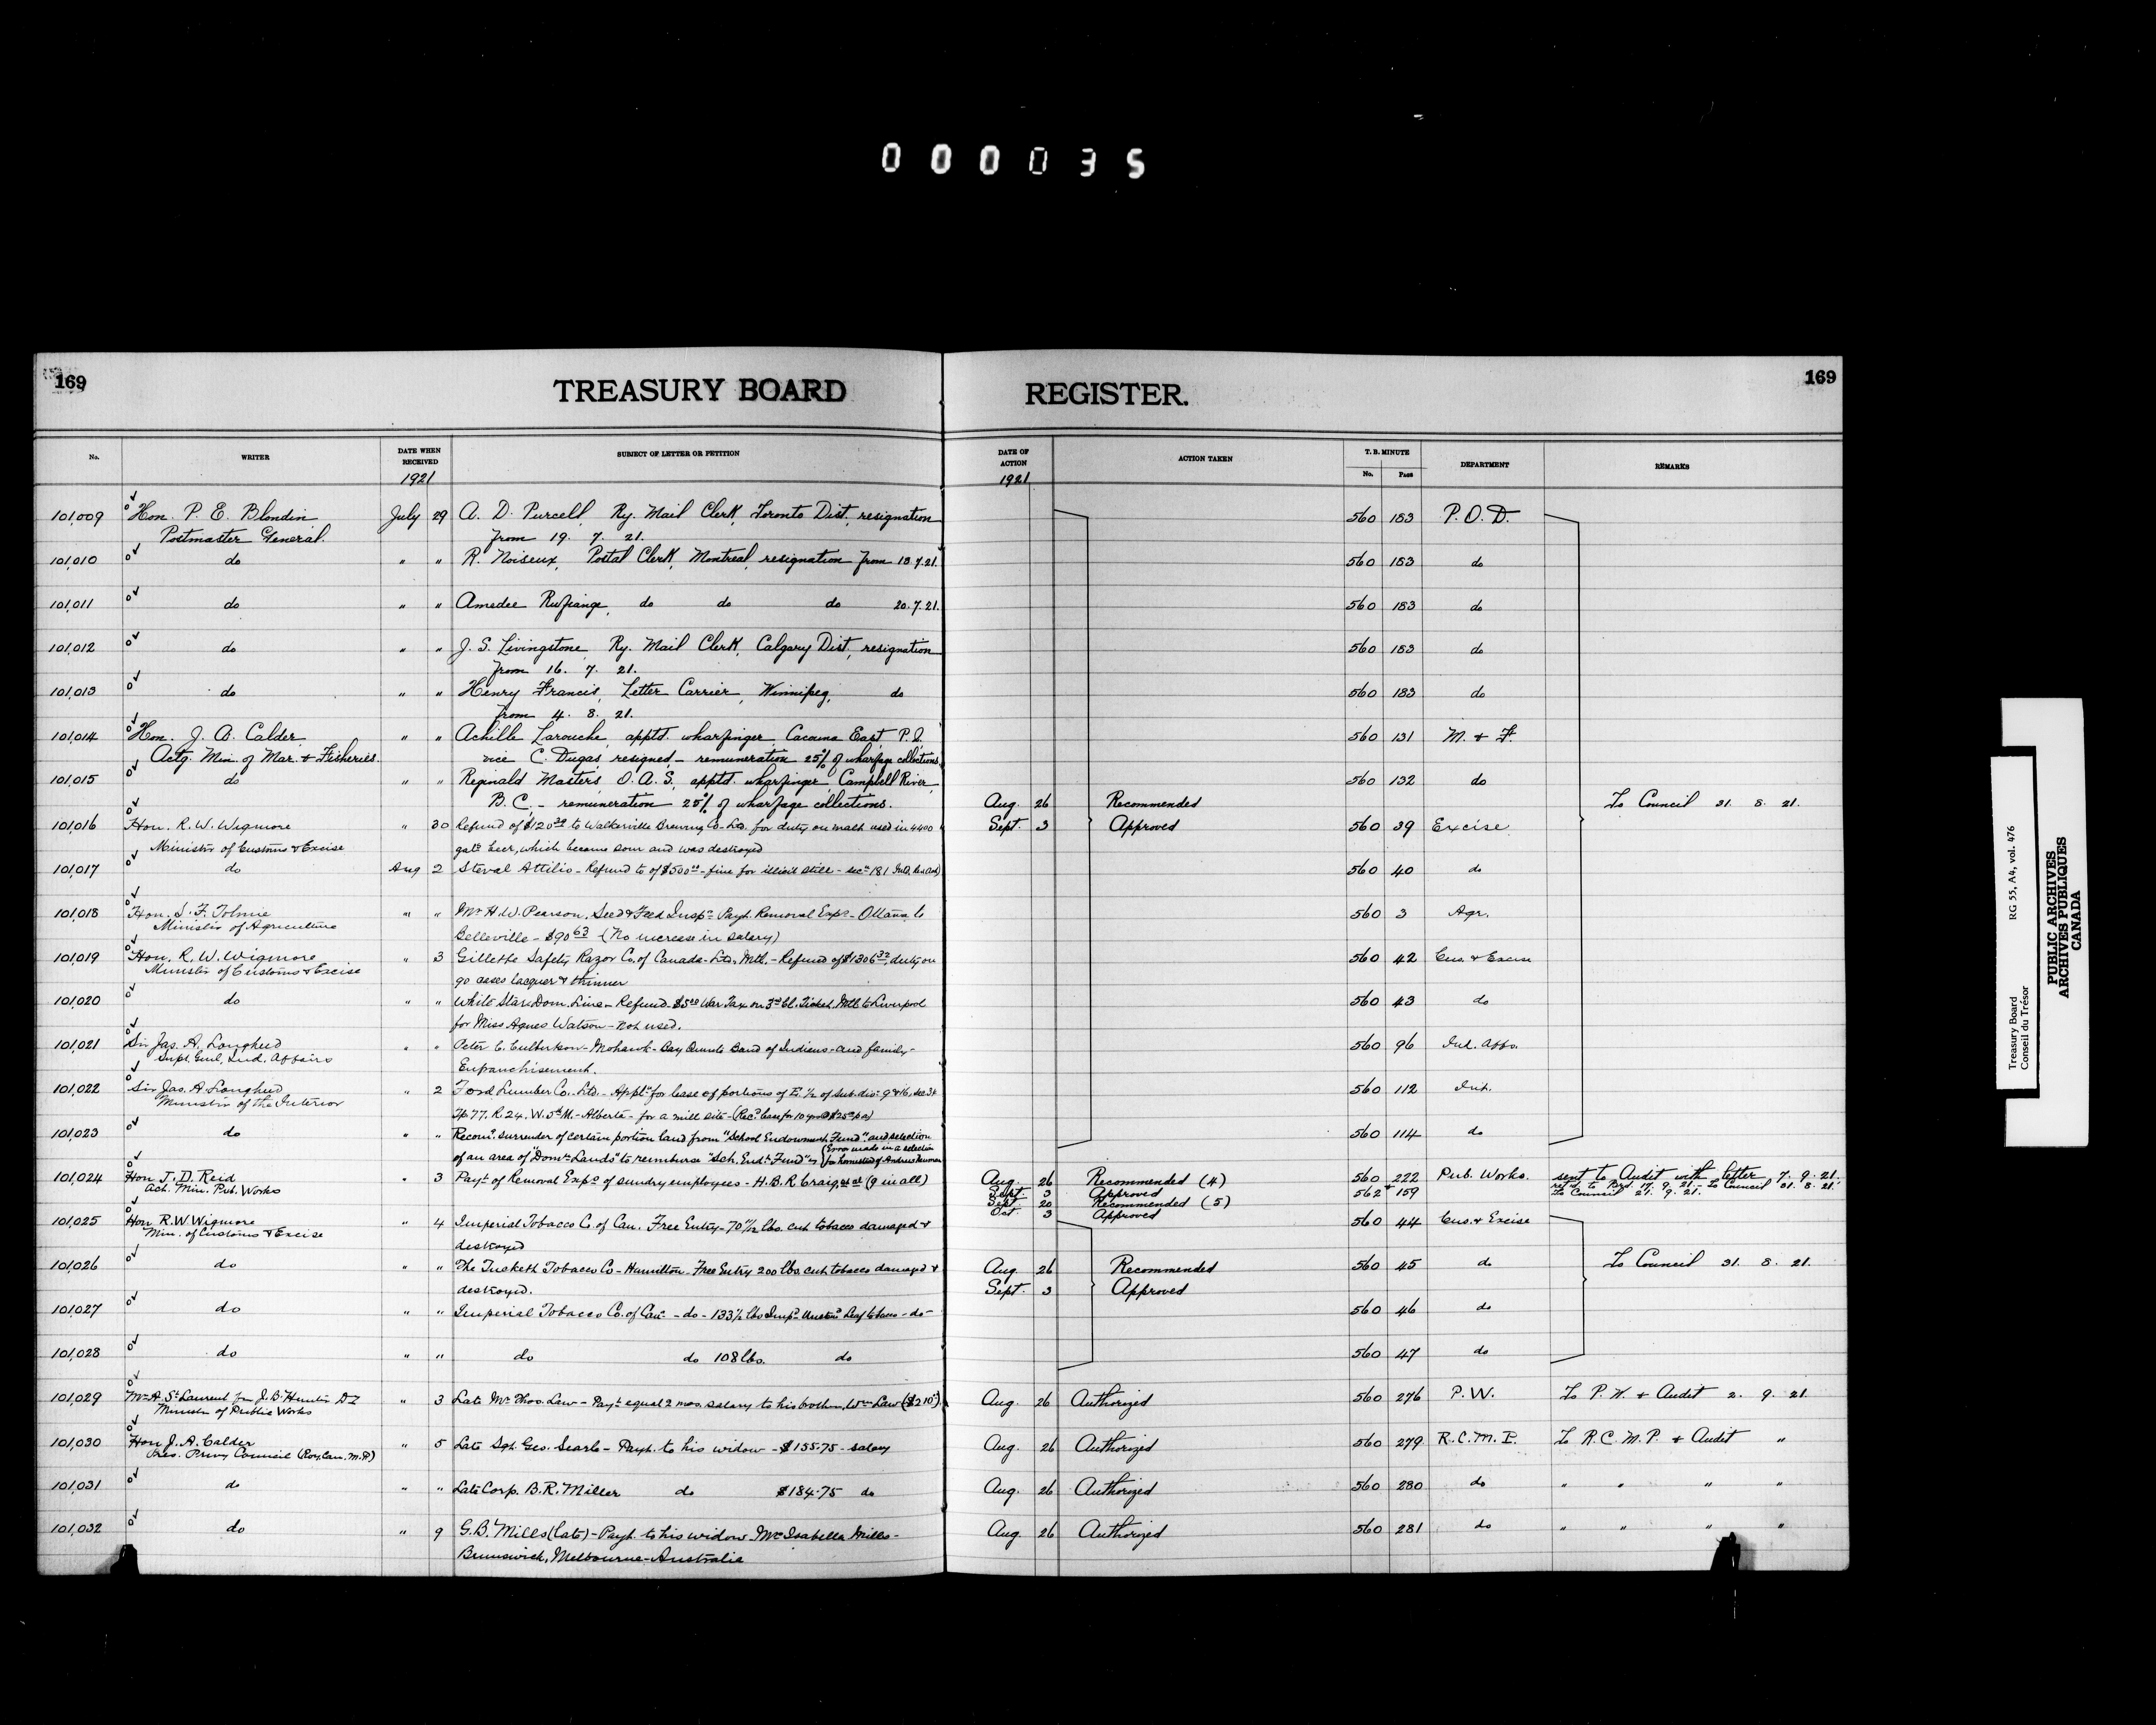 000035
169 TREASURY BOARD REGISTER. 169
No. WRITER DATE WHEN RECEIVED SUBJECT OF LETTER OR PETITION DATE OF ACTION ACTION TAKEN T. B. MINUTE No. PAGE DEPARTMENT REMARKS
1921 1921
101,009 Hon. P. E. Blondin July 29 A. D. Purcell, Ry. Mail Clerk, Toronto Dist., resignation 560 183 P. O. D.
Postmaster General. from 19. 7. 21.
101,010 do " " R. Noiseux, Postal Clerk, Montreal, resignation from 18.7.21. 560 183 do
101,011 do " " Amedee Rufiange, do do do 20.7.21. 560 183 do
101,012 do " " J. S. Livingstone, Ry. Mail Clerk, Calgary Dist., resignation 560 183 do
from 16. 7. 21.
101,013 do " " Henry Francis, Letter Carrier, Winnipeg, do 560 183 do
from 4. 8. 21.
101,014 Hon. J. A. Calder " " Achille Larouche, apptd. wharfinger, Cacouna East, P.Q. 560 131 M. & F.
Actg. Min. of Mar. & Fisheries. vice C. Dugas, resigned, - remuneration 25% of wharfage collections
101,015 do " " Reginald Masters, O.A.S., apptd. wharfinger, Campbell River, 560 132 do
B.C., - remuneration 25% of wharfage collections. Aug. 26 Recommended To Council 31. 8. 21.
101,016 Hon. R. W. Wigmore " 30 Refund of $120 39 to Walkerville Brewing Co. Ltd. for duty on malt used in 4400 Sept. 3 Approved 560 39 Excise
Minister of Customs & Excise gals beer, which became sour and was destroyed
101,017 do Aug 2 Steval Attilio - Refund to of $500 00 - fine for illicit still - sec 181 560 40 do
101,018 Hon. S. F. Tolmie " " Mr H. W. Pearson, Seed & Feed Inspr. Payt. Removal Exps. - Ottawa to 560 3 Agr.
Minister of Agriculture Belleville - $90 63 - (No increase in salary)
101,019 Hon. R. W. Wigmore " 3 Gillette Safety Razor Co. of Canada - Ltd., Mtl. - Refund of $1306 32, duty on 560 42 Cus. & Excise
Minister of Customs & Excise 90 cases lacquer & thinner
101,020 do " " White Star Dom. Line - Refund. $5 00 War Tax on 3rd cl. Ticket, Mtl. to Liverpool 560 43 do
for Miss Agnes Watson - not used.
101,021 Sir Jas. A. Lougheed " " Peter C. Culbertson - Mohawk - Bay Quinte Band of Indians - and family - 560 96 Ind. Affs.
Supt. Genl. Ind. Affairs Enfranchisement.
101,022 Sir Jas. A. Lougheed " 2 Ford Lumber Co. Ltd. - Appln for lease of portions of E. 1/2 of sub. div. 9 & 16, sec. 34 560 112 Int.
Minister of the Interior Tp. 77. R. 24. W. 5th M. - Alberta - for a mill site -
101,023 do " " Recom. surrender of certain portion land from "School Endowment Fund" and selection 560 114 do
of an area of "Domn. Lands" to reimburse "Sch. Endt. Fund" (Error made in a selection for homestead of Andrew
101,024 Hon J. D. Reid " 3 Payt. of Removal Exps. of sundry employees - H. B. R. Craig, et al (9 in all) Aug. 26 Recommended (4) 560 222 Pub. Works. sent to Audit with letter 7. 9. 21.
Act. Min. Pub. Works Sept. 3 Approved 562 159 ret'd to Brd. 17. 9. 21. - To Council 31. 8. 21.
Sept 20 Recommended (5) To Council 21. 9. 21.
Oct. 3 Approved
101,025 Hon R. W. Wigmore " 4 Imperial Tobacco Co. of Can. Free Entry - 70 7/12 lbs. cut tobacco damaged & 560 44 Cus. & Excise
Min. of Customs & Excise destroyed
101,026 do " " The Tucketh Tobacco Co - Hamilton - Free Entry 200 lbs. cut tobacco damaged & Aug. 26 Recommended 560 45 do To Council 31. 8. 21.
destroyed. Sept. 3 Approved
101027 do " " Imperial Tobacco Co. of Can. - do - 133 1/2 lbs Leaf tobacco - do - 560 46 do
101,028 do " " do do 108 lbs. do 560 47 do
101,029 Mr A. St Laurent for J. B. Hunter " 3 Late Mr. Thos. Law - Payt equal 2 mos. salary to his brother, Wm Law ($210) Aug. 26 Authorized 560 276 P.W. To P. W. & Audit 2. 9. 21
Minister of Public Works
101,030 Hon J. A. Calder " 5 Late Sgt. Geo. Searle - Payt. to his widow - $155.75 - salary Aug. 26 Authorized 560 279 R.C.M.P. To R.C.M.P. & Audit "
Pres. Privy Council (Roy. Can. M. P.)
101,031 do " " Late Corp. B. R. Miller do $184.75 do Aug. 26 Authorized 560 280 do " " " "
101,032 do " 9 G. B. Mills (Late) - Payt. to his widow Mrs Isabella Mills - Aug. 26 Authorized 560 281 do " " " "
Brunswick, Melbourne - Australia
Treasury Board RG 55, A4, vol. 476
Conseil du Trésor
PUBLIC ARCHIVES
ARCHIVES PUBLIQUES
CANADA